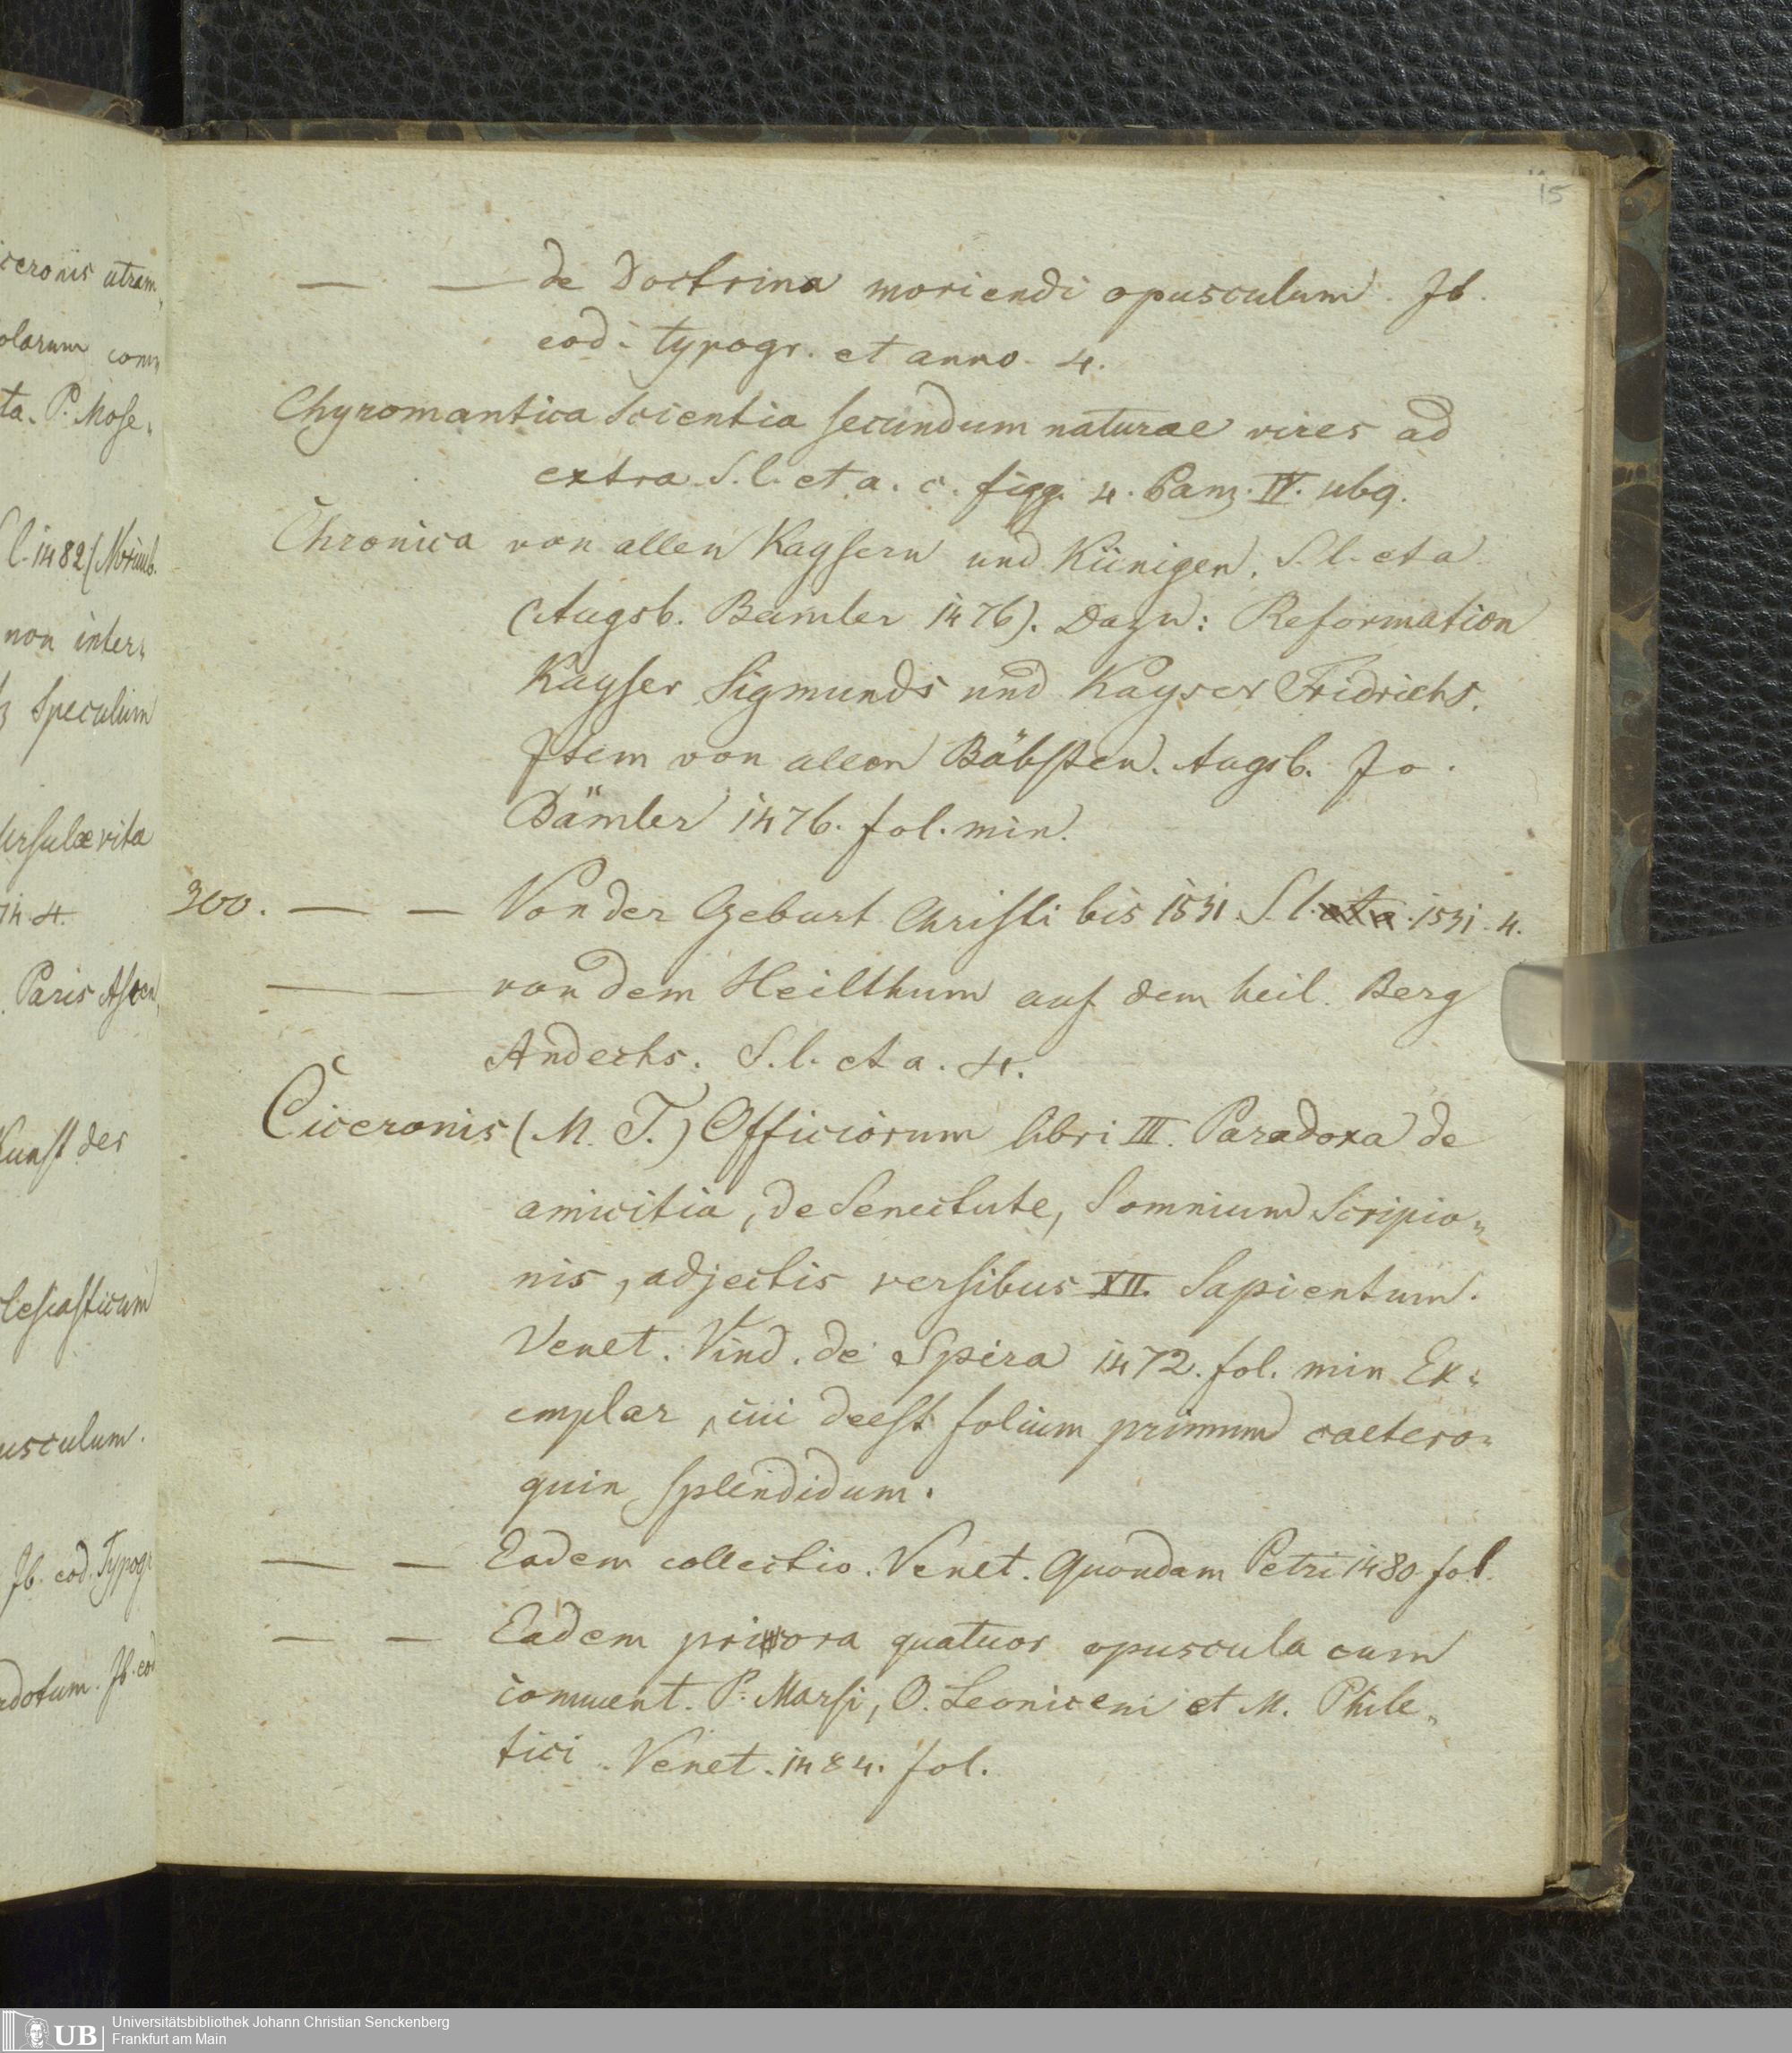 15
— — de Doctrina moriendi opusculum. Ib.
eod. typogr. et anno. 4.
Chyromantica Scientia secundum naturae vires ad
extra. S. l. et a. c. figg. 4. Panz. IV.
Chronica von allen Kaysern und Künigen. S. l. et a
(Augsb. Bämler 1476). Dazu: Reformation
Kayser Sigmunds und Kayser Fridrichs.
Item von allen Bäbsten. Augsb. Jo.
Bämler 1476. fol. min.
300. — — Von der Geburt Christi bis 1531. S. l. 1531. 4.
— von dem Heilthum auf dem heil. Berg
Andechs. S. l. et a. 4.
Ciceronis (M. T.) Officiorum libri III. Paradoxa de
amicitia, de Senectute, Somnium Scripio„
nis, adjectis versibus XII. Sapientum.
Venet. Vind. de Spira 1472. fol. min Ex„
emplar, cui deest folium primum caetero„
quin splendidum.
— — Eadem collectio. Venet. Quondam Petri 1480 fol.
— — Eadem priora quatuor opuscula cum
comment. P. Marsi, O. Leoniceni et M. Phile„
tici. Venet. 1484. fol.
iceronis utram„
olarum com„
ta. P. Mose„
l. 1482 (Norimb.
non inter„
Speculum
Ursulæ vita
4.
Paris Ascen„
Kunst des
clesiasticum
usculum.
Ib. eod. Typogr.
Ib. eod
UB
Universitätsbibliothek Johann Christian Senckenberg
Frankfurt am Main